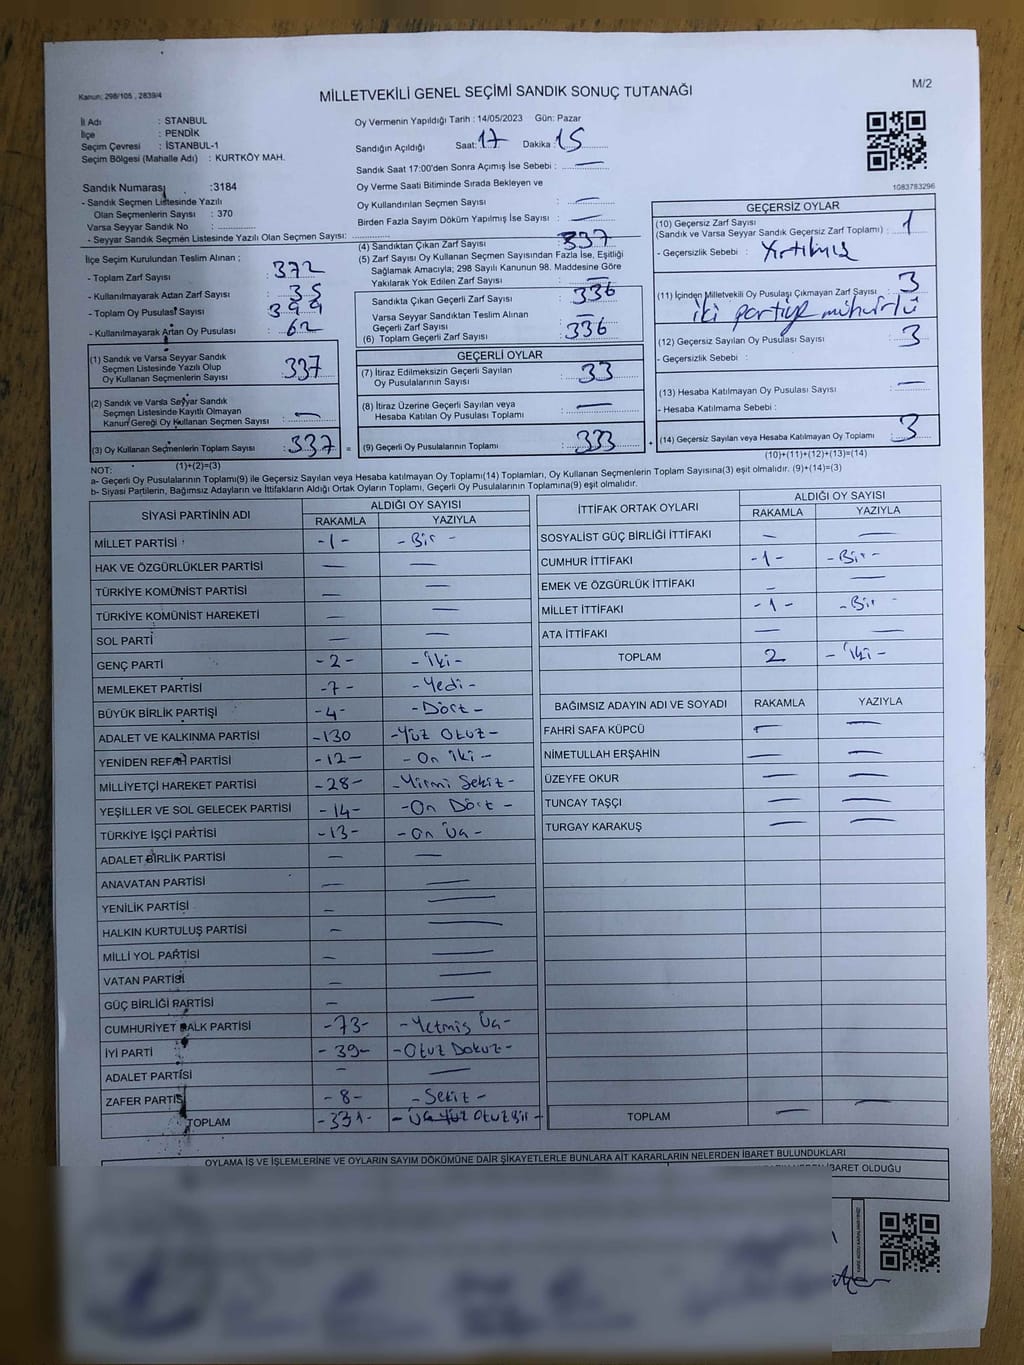 Kanun: 298/105 , 2839/4
MİLLETVEKİLİ GENEL SEÇİMİ SANDIK SONUÇ TUTANAĞI
M/2
İl Adı : STANBUL
İlçe : PENDİK
Seçim Çevresi : İSTANBUL-1
Seçim Bölgesi (Mahalle Adı) : KURTKÖY MAH.
Sandık Numarası :3184
- Sandık Seçmen Listesinde Yazılı
Olan Seçmenlerin Sayısı : 370
Varsa Seyyar Sandık No :
- Seyyar Sandık Seçmen Listesinde Yazılı Olan Seçmen Sayısı:
Oy Vermenin Yapıldığı Tarih : 14/05/2023 Gün: Pazar
Sandığın Açıldığı Saat: 17 Dakika : 15
Sandık Saat 17:00'den Sonra Açımış İse Sebebi : —
Oy Verme Saati Bitiminde Sırada Bekleyen ve
Oy Kullandırılan Seçmen Sayısı : —
Birden Fazla Sayım Döküm Yapılmış İse Sayısı : —
1083783296
İlçe Seçim Kurulundan Teslim Alınan ;
- Toplam Zarf Sayısı : 372
- Kullanılmayarak Artan Zarf Sayısı : 35
- Toplam Oy Pusulası Sayısı : 399
- Kullanılmayarak Artan Oy Pusulası : 62
(1) Sandık ve Varsa Seyyar Sandık
Seçmen Listesinde Yazılı Olup
Oy Kullanan Seçmenlerin Sayısı : 337
(2) Sandık ve Varsa Seyyar Sandık
Seçmen Listesinde Kayıtlı Olmayan
Kanun Gereği Oy Kullanan Seçmen Sayısı : —
(3) Oy Kullanan Seçmenlerin Toplam Sayısı : 337 =
(1)+(2)=(3)
(4) Sandıktan Çıkan Zarf Sayısı : 337
(5) Zarf Sayısı Oy Kullanan Seçmen Sayısından Fazla İse, Eşitliği
Sağlamak Amacıyla; 298 Sayılı Kanunun 98. Maddesine Göre
Yakılarak Yok Edilen Zarf Sayısı : —
Sandıkta Çıkan Geçerli Zarf Sayısı : 336
Varsa Seyyar Sandıktan Teslim Alınan
Geçerli Zarf Sayısı : —
(6) Toplam Geçerli Zarf Sayısı : 336
GEÇERLİ OYLAR
(7) İtiraz Edilmeksizin Geçerli Sayılan
Oy Pusulalarının Sayısı : 33
(8) İtiraz Üzerine Geçerli Sayılan veya
Hesaba Katılan Oy Pusulası Toplamı : —
(9) Geçerli Oy Pusulalarının Toplamı : 333 +
GEÇERSİZ OYLAR
(10) Geçersiz Zarf Sayısı
(Sandık ve Varsa Seyyar Sandık Geçersiz Zarf Toplamı) : 1
- Geçersizlik Sebebi : Yırtılmış
(11) İçinden Milletvekili Oy Pusulası Çıkmayan Zarf Sayısı : 3
iki partiye mühürlü
(12) Geçersiz Sayılan Oy Pusulası Sayısı : 3
- Geçersizlik Sebebi :
(13) Hesaba Katılmayan Oy Pusulası Sayısı : —
- Hesaba Katılmama Sebebi :
(14) Geçersiz Sayılan veya Hesaba Katılmayan Oy Toplamı : 3
(10)+(11)+(12)+(13)=(14)
NOT:
a- Geçerli Oy Pusulalarının Toplamı(9) ile Geçersiz Sayılan veya Hesaba katılmayan Oy Toplamı(14) Toplamları, Oy Kullanan Seçmenlerin Toplam Sayısına(3) eşit olmalıdır. (9)+(14)=(3)
b- Siyasi Partilerin, Bağımsız Adayların ve İttifakların Aldığı Ortak Oyların Toplamı, Geçerli Oy Pusulalarının Toplamına(9) eşit olmalıdır.
SİYASİ PARTİNİN ADI ALDIĞI OY SAYISI
RAKAMLA YAZIYLA
MİLLET PARTİSİ -1- -Bir-
HAK VE ÖZGÜRLÜKLER PARTİSİ — —
TÜRKİYE KOMÜNİST PARTİSİ — —
TÜRKİYE KOMÜNİST HAREKETİ — —
SOL PARTİ — —
GENÇ PARTİ -2- -İki-
MEMLEKET PARTİSİ -7- -Yedi-
BÜYÜK BİRLİK PARTİSİ -4- -Dört-
ADALET VE KALKINMA PARTİSİ -130 -Yüz Otuz-
YENİDEN REFAH PARTİSİ -12- -On iki-
MİLLİYETÇİ HAREKET PARTİSİ -28- -Yirmi Sekiz-
YEŞİLLER VE SOL GELECEK PARTİSİ -14- -On Dört-
TÜRKİYE İŞÇİ PARTİSİ -13- -On Üç-
ADALET BİRLİK PARTİSİ — —
ANAVATAN PARTİSİ — —
YENİLİK PARTİSİ — —
HALKIN KURTULUŞ PARTİSİ — —
MİLLİ YOL PARTİSİ — —
VATAN PARTİSİ — —
GÜÇ BİRLİĞİ PARTİSİ — —
CUMHURİYET HALK PARTİSİ -73- -Yetmiş Üç-
İYİ PARTİ -39- -Otuz Dokuz-
ADALET PARTİSİ — —
ZAFER PARTİS -8- -Sekiz-
TOPLAM -331- -Üç Yüz Otuz Bir-
İTTİFAK ORTAK OYLARI ALDIĞI OY SAYISI
RAKAMLA YAZIYLA
SOSYALİST GÜÇ BİRLİĞİ İTTİFAKI — —
CUMHUR İTTİFAKI -1- -Bir-
EMEK VE ÖZGÜRLÜK İTTİFAKI — —
MİLLET İTTİFAKI -1- -Bir-
ATA İTTİFAKI — —
TOPLAM 2 -İki-
BAĞIMSIZ ADAYIN ADI VE SOYADI RAKAMLA YAZIYLA
FAHRİ SAFA KÜPCÜ — —
NİMETULLAH ERŞAHİN — —
ÜZEYFE OKUR — —
TUNCAY TAŞÇI — —
TURGAY KARAKUŞ — —
TOPLAM — —
OYLAMA İŞ VE İŞLEMLERİNE VE OYLARIN SAYIM DÖKÜMÜNE DAİR ŞİKAYETLERLE BUNLARA AİT KARARLARIN NELERDEN İBARET BULUNDUKLARI
İBARET OLDUĞU